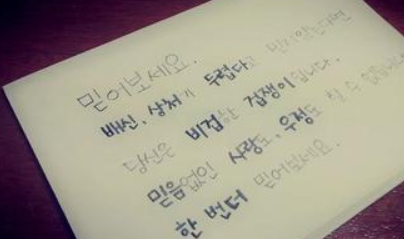 믿어보세요.
배신, 상처가 두렵다고 믿지않는다면
당신은 비겁한 겁쟁이입니다.
믿음없인 사랑도, 우정도 할 수 없습니다.
한 번더 믿어보세요.